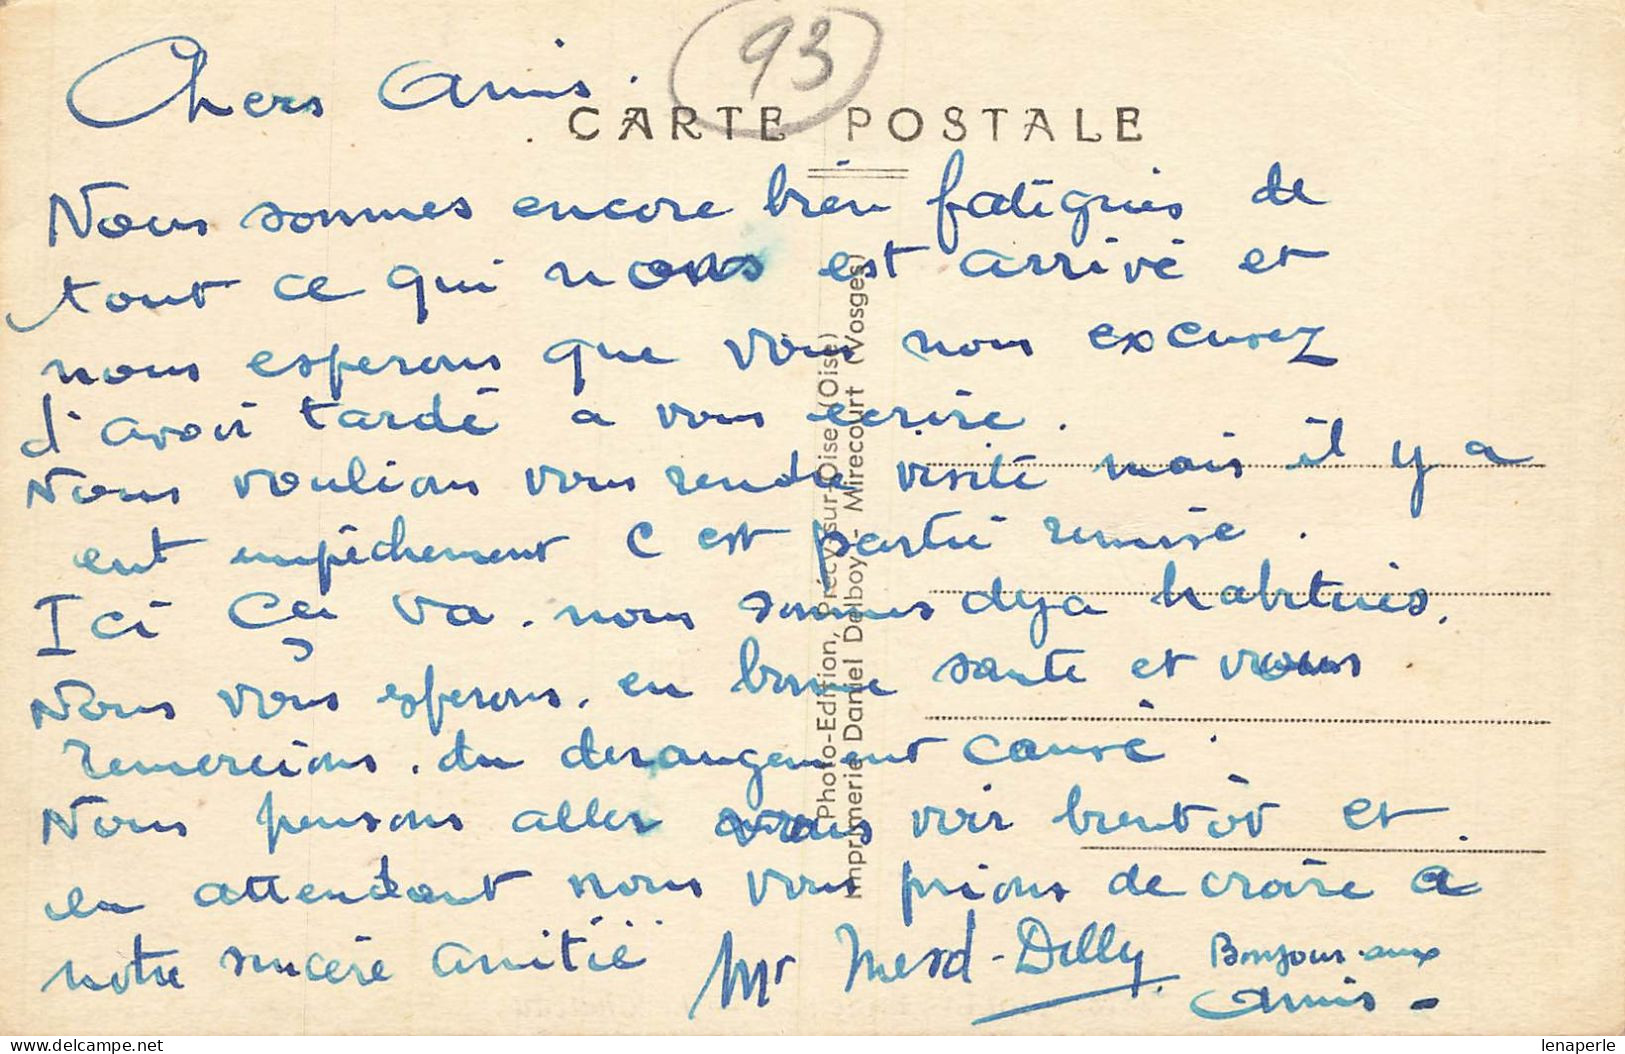 93
CARTE POSTALE
Chers Amis.
Nous sommes encore bien fatigués de
tout ce qui nous est arrivé et
nous esperons que vous nous excusez
d'avoir tardé a vous ecrire.
Nous voulions vous rendre visite mais il y a
eut empêchement C est partie remise.
Ici ça va. nous sommes deja habitués.
Nous vous esperons. en bonne santé et vous
remercions. du derangement causé.
Nous pensons aller vous voir bientôt et
en attendant nous vous prions de croire a
notre sincère amitié
Mr Delly
Bonjour aux
Amis -
Photo-Edition, Précy-sur-Oise (Oise)
Imprimerie Daniel Delboy - Mirecourt (Vosges)
lenaperle